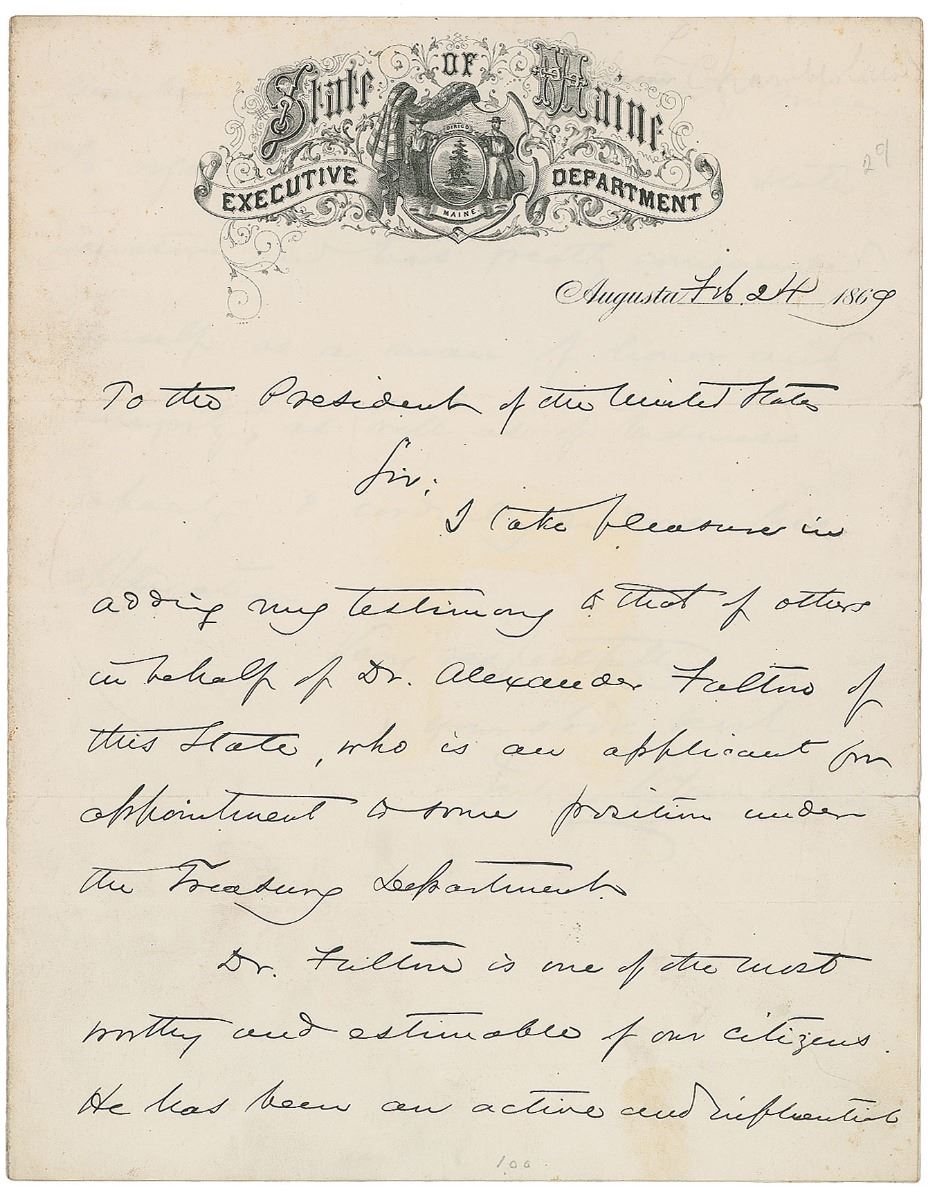 State OF Maine
DIRIGO
MAINE
EXECUTIVE DEPARTMENT
29
Augusta Feb. 24 1869
To the President of the United States
Sir:
I take pleasure in
adding my testimony to that of others
in behalf of Dr. Alexander Fulton of
this State, who is an applicant for
appointment to some position under
the Treasury Department.
Dr. Fulton is one of the most
worthy and estimable of our citizens.
He has been an active and influential
100